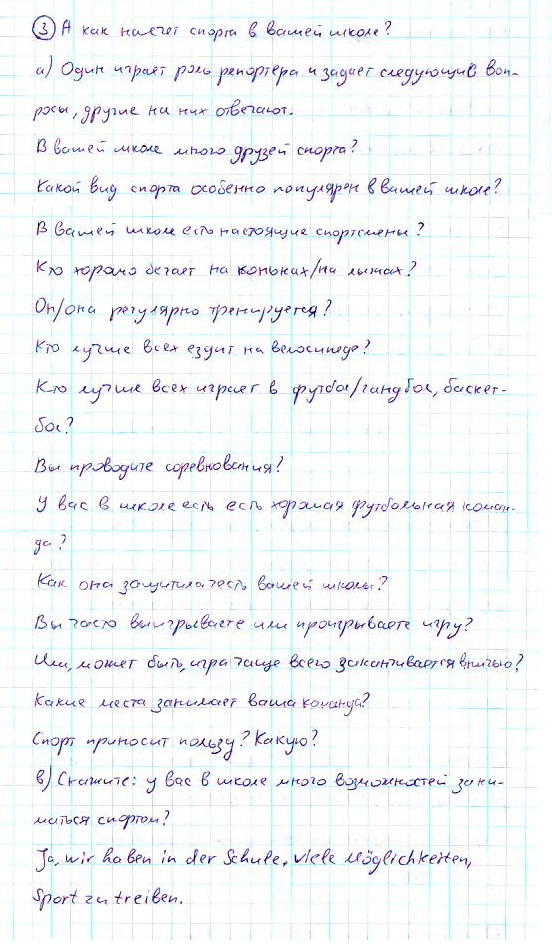 ③ А как насчет спорта в вашей школе?
а) Один играет роль репортера и задает следующие воп-
росы, другие на них отвечают.
В вашей школе много друзей спорта?
Какой вид спорта особенно популярен в вашей школе?
В вашей школе есть настоящие спортсмены?
Кто хорошо бегает на коньках/на лыжах?
Он/она регулярно тренируется?
Кто лучше всех ездит на велосипеде?
Кто лучше всех играет в футбол/гандбол, баскет-
бол?
Вы проводите соревнования?
У вас в школе есть есть хорошая футбольная коман-
да?
Как она защитила честь вашей школы?
Вы часто выигрываете или проигрываете игру?
Или, может быть, игра чаще всего заканчивается вничью?
Какие места занимает ваша команда?
Спорт приносит пользу? Какую?
в) Скажите: у вас в школе много возможностей зани-
маться спортом?
Ja, wir haben in der Schule, viele Möglichkeiten,
Sport zu treiben.